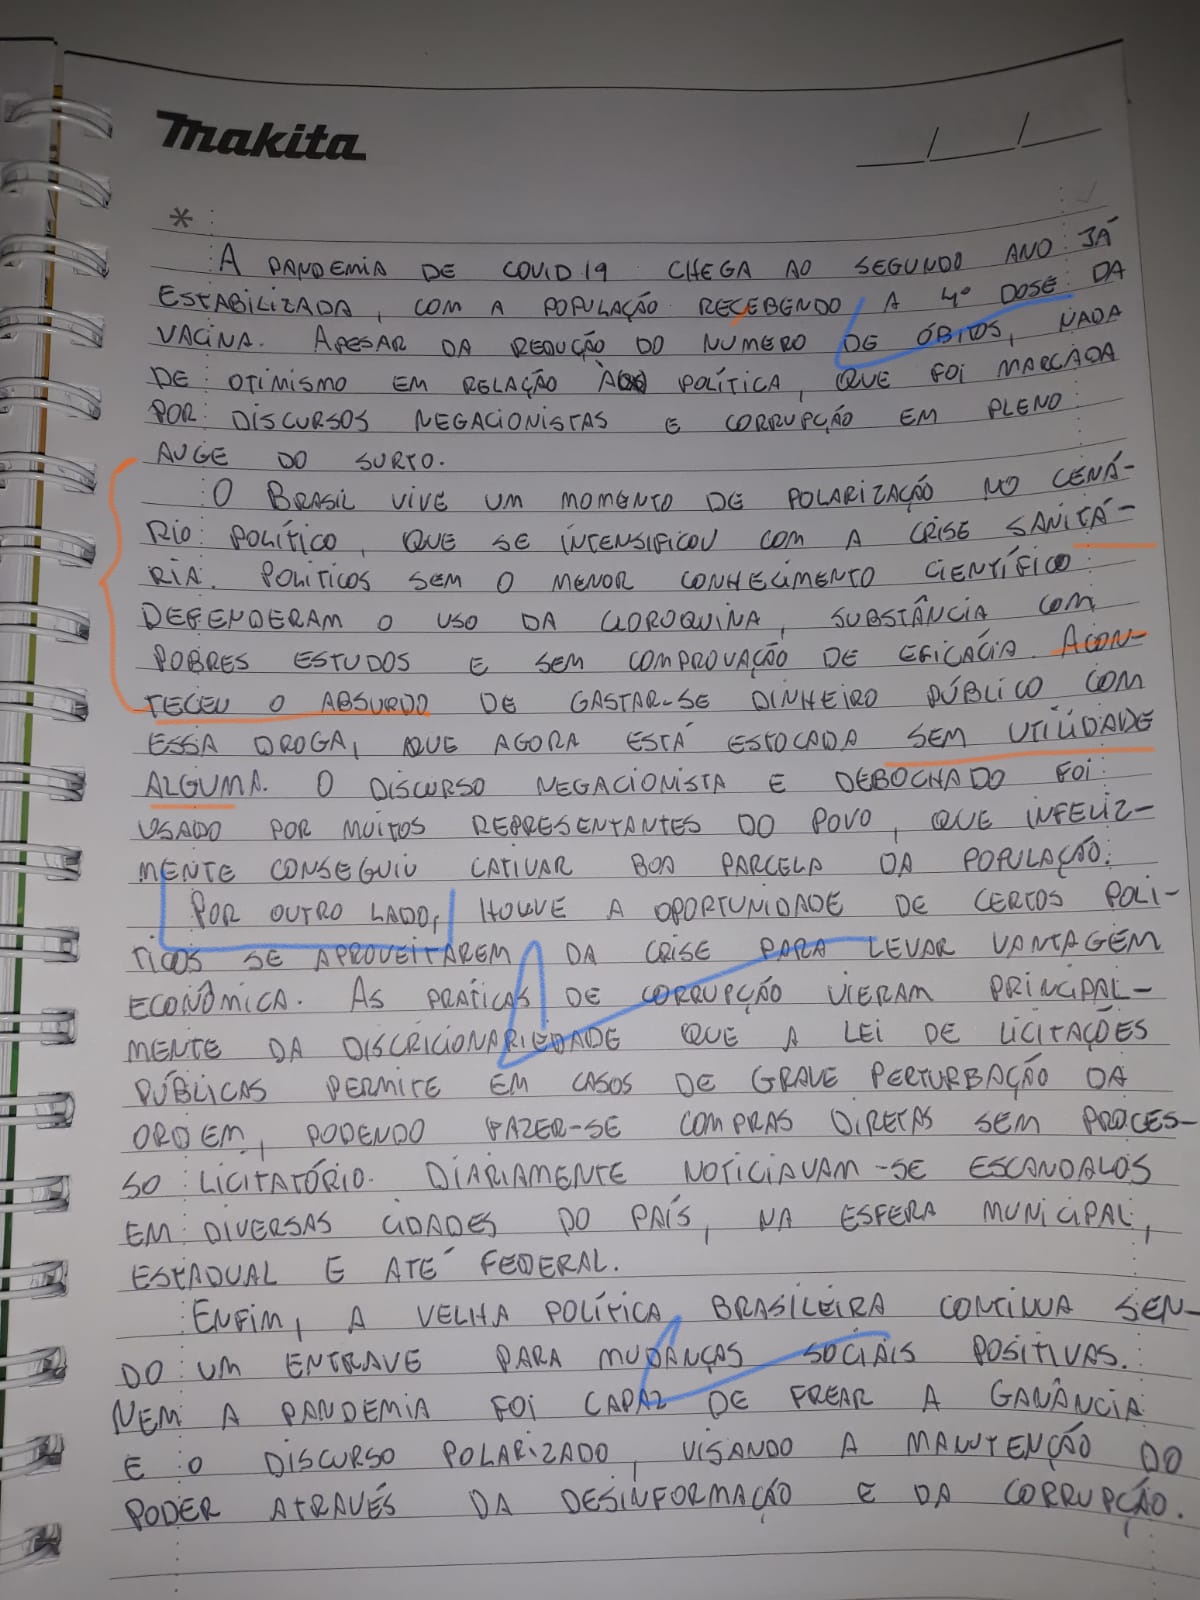 makita
__/__/__
*
A PANDEMIA DE COVID19 CHEGA AO SEGUNDO ANO JÁ
ESTABILIZADA, COM A POPULAÇÃO RECEBENDO A 4º DOSE DA
VACINA. APESAR DA REDUÇÃO DO NUMERO DE ÓBITOS, NADA
DE OTIMISMO EM RELAÇÃO À POLÍTICA, QUE FOI MARCADA
POR DISCURSOS NEGACIONISTAS E CORRUPÇÃO EM PLENO
AUGE DO SURTO.
O BRASIL VIVE UM MOMENTO DE POLARIZAÇÃO NO CENÁ-
RIO POLÍTICO, QUE SE INTENSIFICOU COM A CRISE SANITÁ-
RIA. POLITICOS SEM O MENOR CONHECIMENTO CIENTÍFICO
DEFENDERAM O USO DA CLOROQUINA, SUBSTÂNCIA COM
POBRES ESTUDOS E SEM COMPROVAÇÃO DE EFICÁCIA. ACON-
TECEU O ABSURDO DE GASTAR-SE DINHEIRO PÚBLICO COM
ESSA DROGA, QUE AGORA ESTÁ ESTOCADA SEM UTILIDADE
ALGUMA. O DISCURSO NEGACIONISTA E DEBOCHADO FOI
USADO POR MUITOS REPRESENTANTES DO POVO, QUE INFELIZ-
MENTE CONSEGUIU CATIVAR BOA PARCELA DA POPULAÇÃO.
POR OUTRO LADO, HOUVE A OPORTUNIDADE DE CERTOS POLI-
TICOS SE APROVEITAREM DA CRISE PARA LEVAR VANTAGEM
ECONÔMICA. AS PRÁTICAS DE CORRUPÇÃO VIERAM PRINCIPAL-
MENTE DA DISCRICIONARIEDADE QUE A LEI DE LICITAÇÕES
PÚBLICAS PERMITE EM CASOS DE GRAVE PERTURBAÇÃO DA
ORDEM, PODENDO FAZER-SE COMPRAS DIRETAS SEM PROCES-
SO LICITATÓRIO. DIARIAMENTE NOTICIAVAM-SE ESCANDALOS
EM DIVERSAS CIDADES DO PAÍS, NA ESFERA MUNICIPAL,
ESTADUAL E ATÉ FEDERAL.
ENFIM, A VELHA POLÍTICA BRASILEIRA CONTINUA SEN-
DO UM ENTRAVE PARA MUDANÇAS SOCIAIS POSITIVAS.
NEM A PANDEMIA FOI CAPAZ DE FREAR A GANÂNCIA
E O DISCURSO POLARIZADO, VISANDO A MANUTENÇÃO DO
PODER ATRAVÉS DA DESINFORMAÇÃO E DA CORRUPÇÃO.